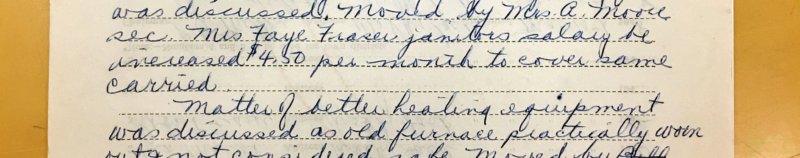 was discussed. Moved by Mrs A. Moore
sec. Mrs Faye Fraser janitors salary be
increased $4.50 per month to cover same
carried.
Matter of better heating equipment
was discussed as old furnace practically worn
out & not considered safe. Moved by